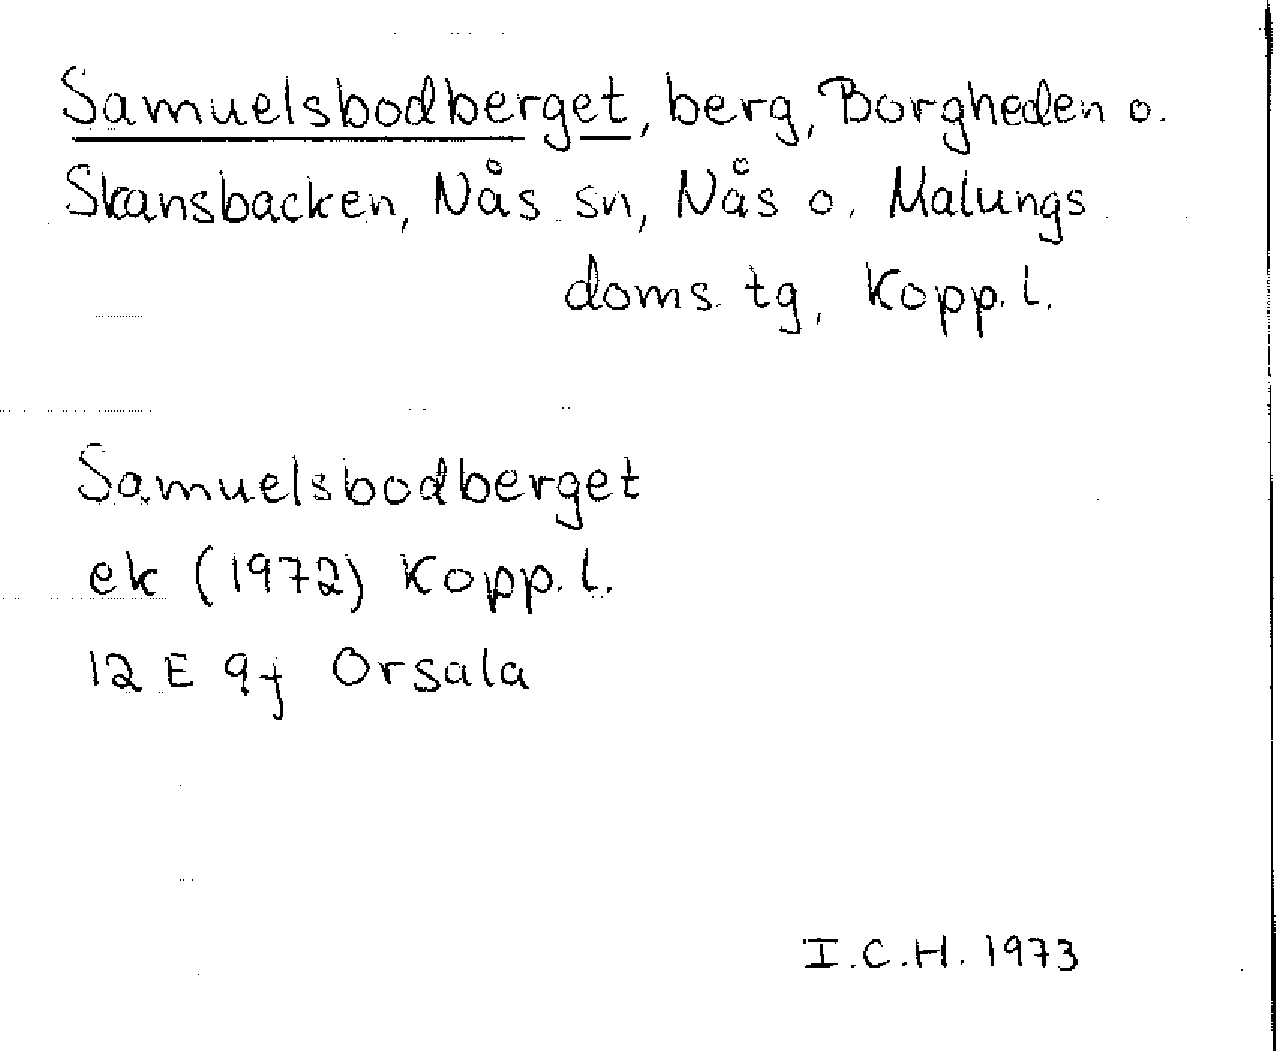 Samuelsbodberget, berg, Borgheden o.
Skansbacken, Nås sn, Nås o. Malungs
doms. tg, Kopp. l.
Samuelsbodberget
ek (1972) Kopp. l.
12 E 9f Orsala
I.C.H. 1973